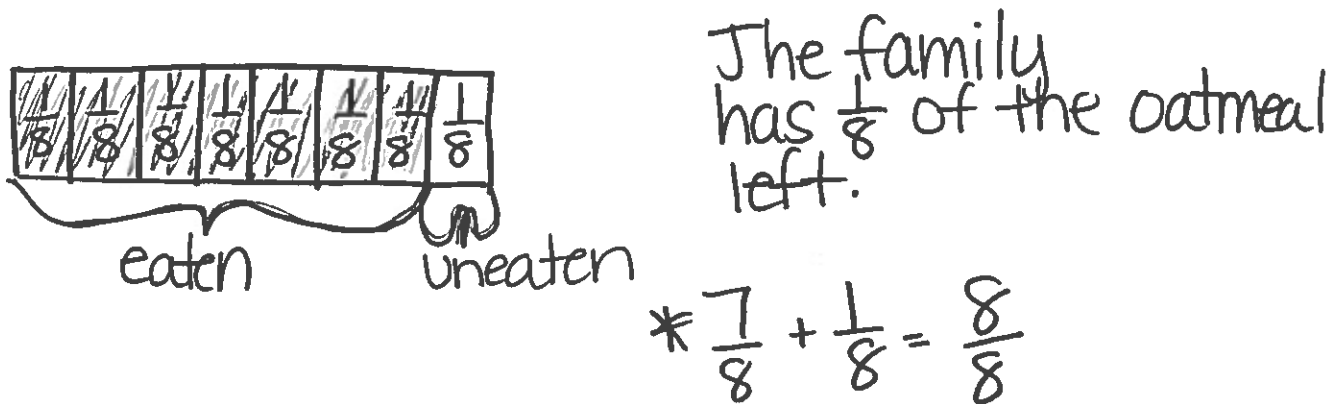 1/8 1/8 1/8 1/8 1/8 1/8 1/8 1/8
eaten uneaten
The family
has 1/8 of the oatmeal
left.
* 7/8 + 1/8 = 8/8